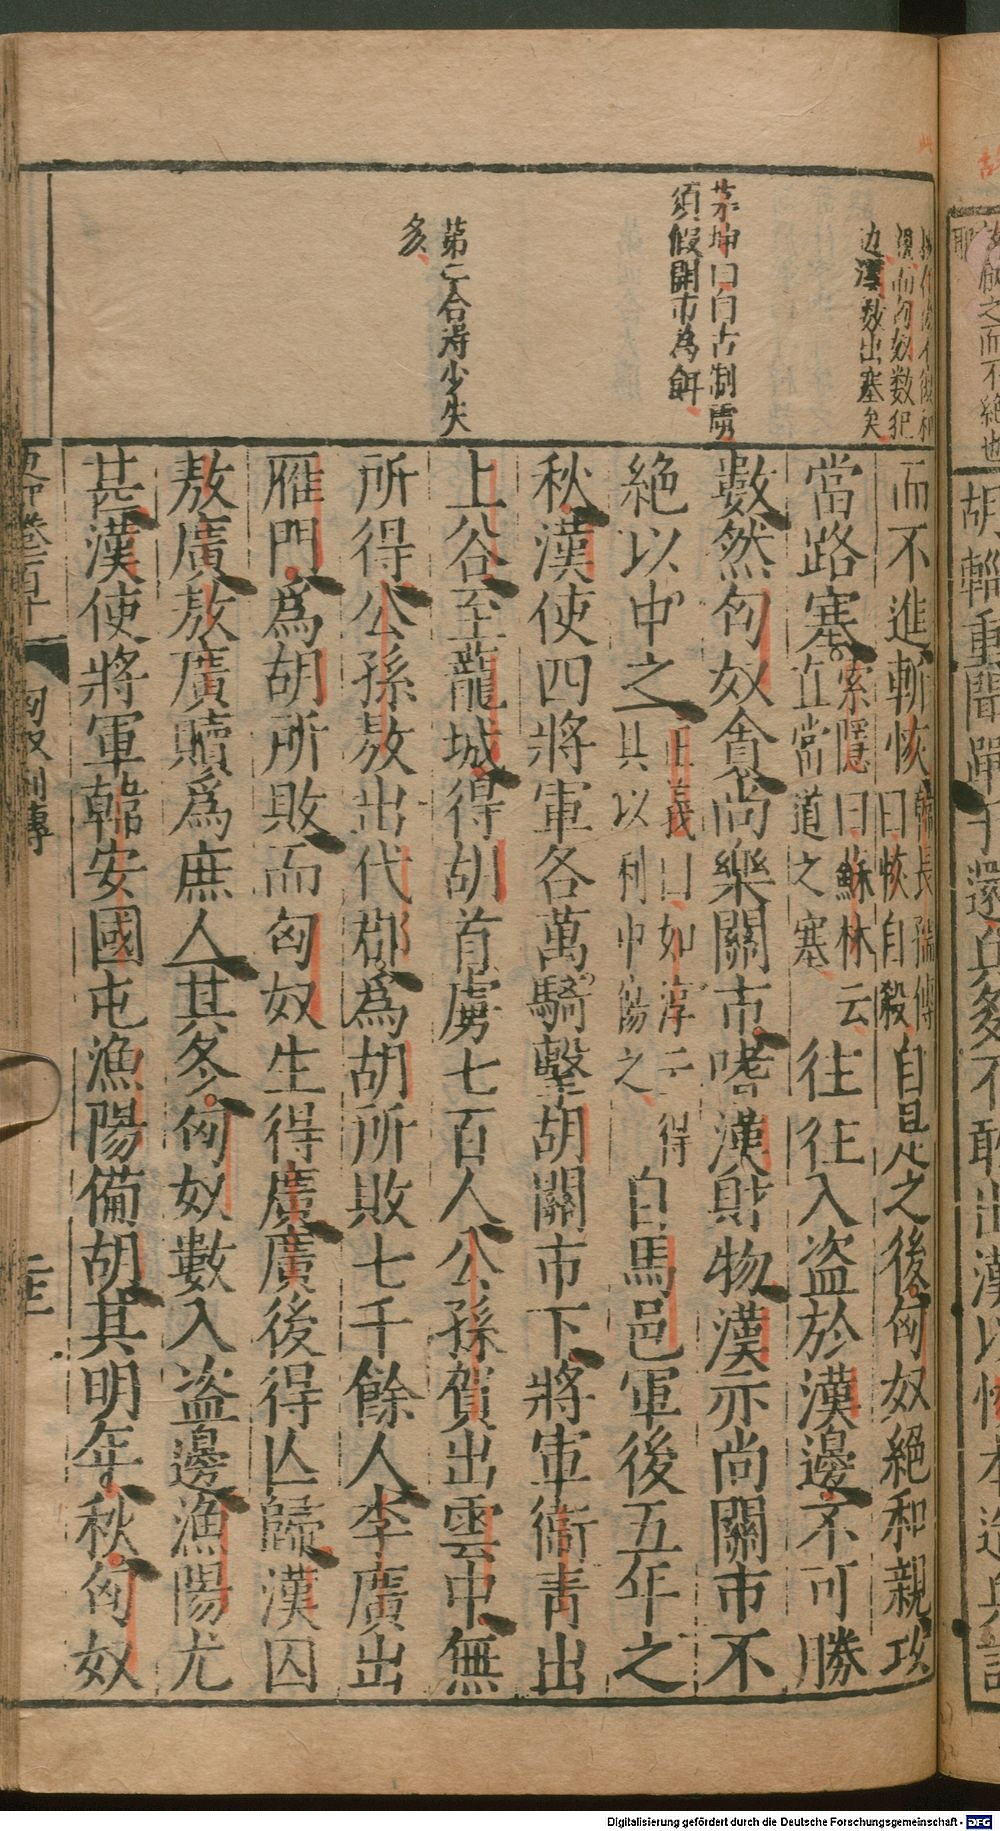 故服之而不絶也
耶
胡輜重聞單于還兵多不敢出漢以恢本造兵謀
漢而匈奴数犯
边漢数出塞矣
茅坤曰自古制虜
須假開市為餌
第二合淂少失
多
而不進斬恢韓長孺傳曰恢自殺自是之後匈奴絕和親攻
當路塞索隱曰蘇林云直當道之塞往往入盜於漢邊不可勝
數然匈奴貪尚樂關市嗜漢財物漢亦尚關市不
絕以中之正義曰如淳云得具以利中傷之自馬邑軍後五年之
秋漢使四將軍各萬騎擊胡關市下將軍衞青出
上谷至蘢城得胡首虜七百人公孫賀出雲中無
所得公孫敖出代郡爲胡所敗七千餘人李廣出
雁門爲胡所敗而匈奴生得廣廣後得亾歸漢囚
敖廣敖廣贖爲庶人其冬匈奴數入盜邊漁陽尤
甚漢使將軍韓安國屯漁陽備胡其明年秋匈奴
史記卷一百十
匈奴列傳
二十三
Digitalisierung gefördert durch die Deutsche Forschungsgemeinschaft - DFG